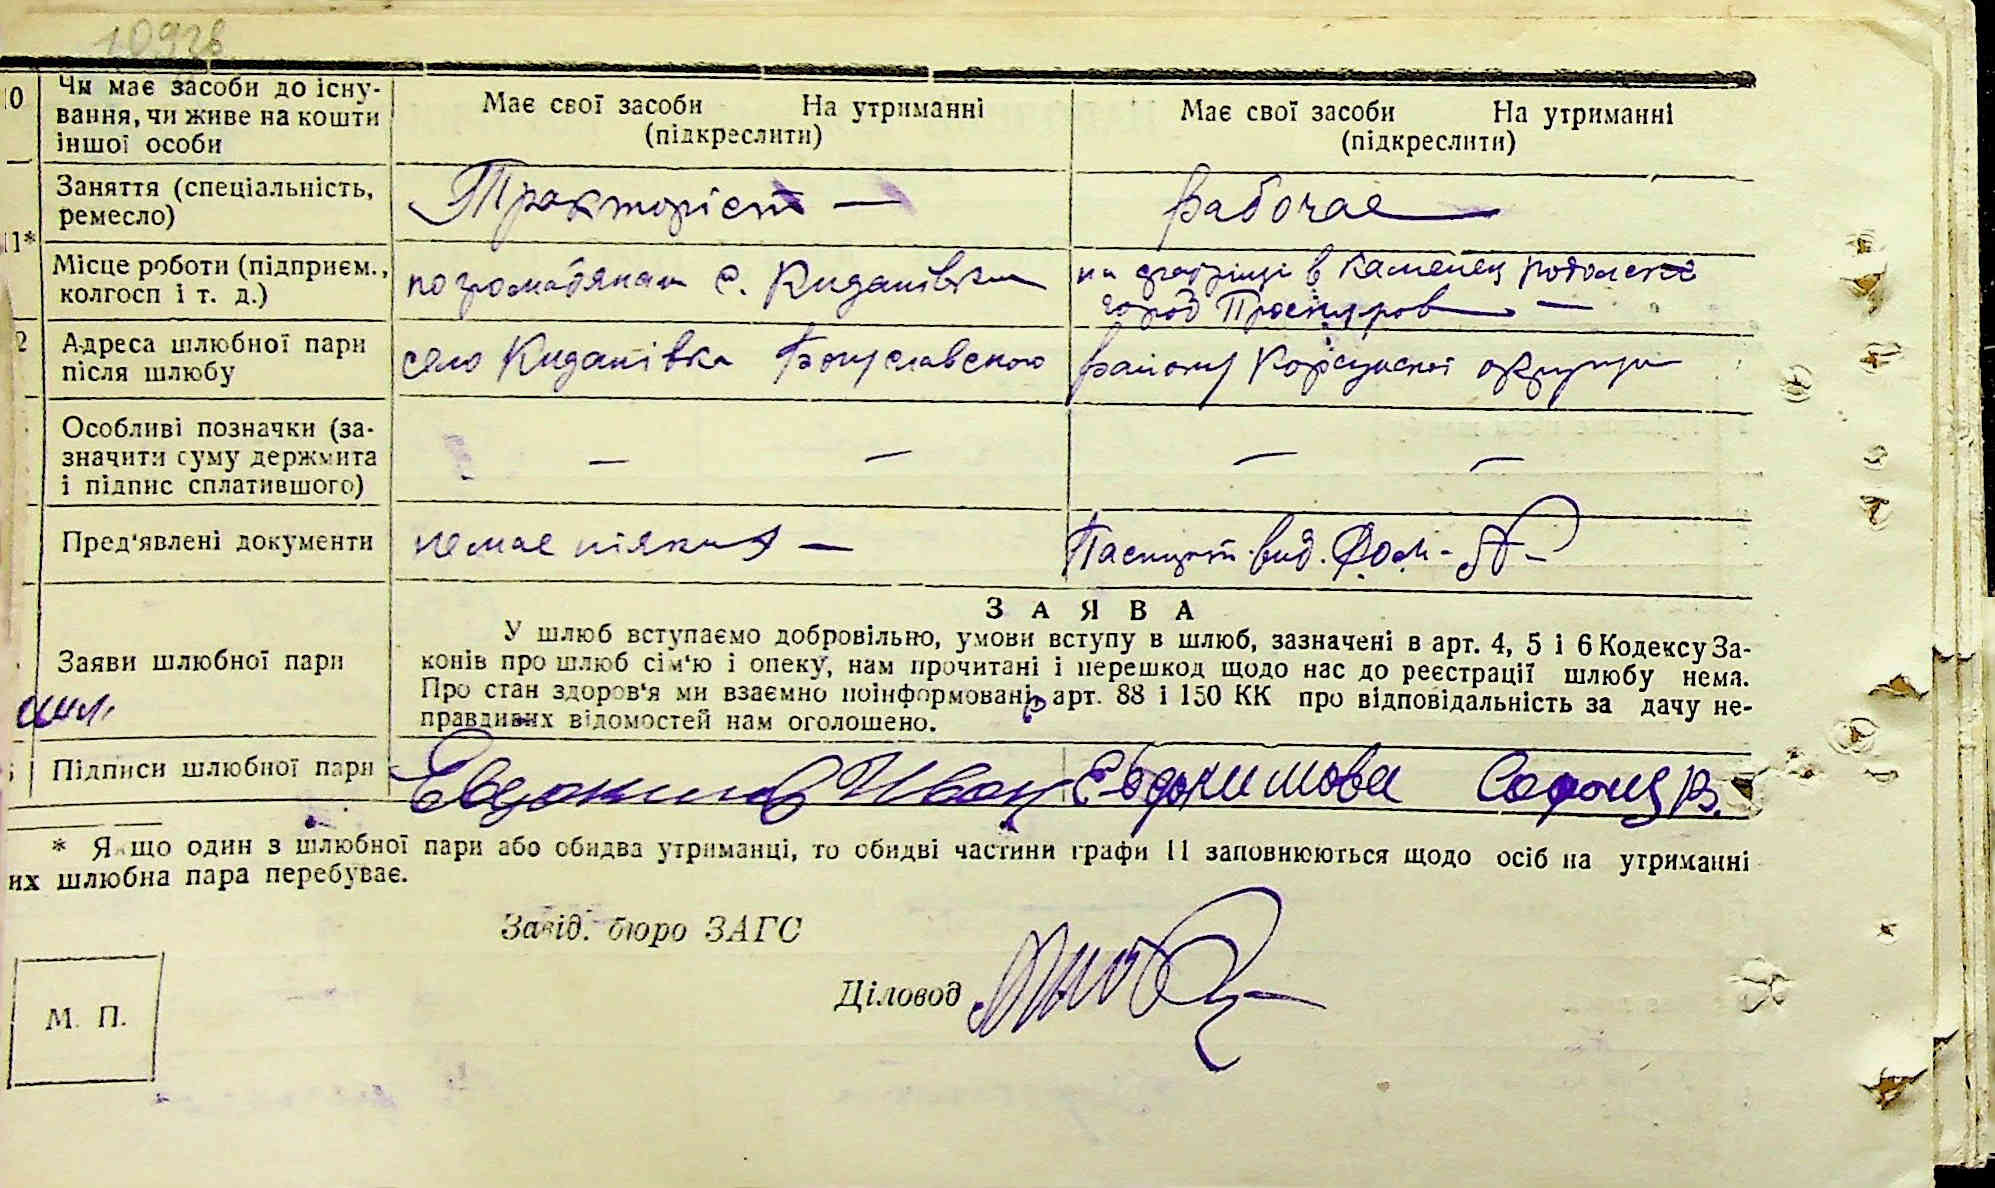 10
Чи має засоби до існу-
вання, чи живе на кошти
іншої особи
Має свої засоби На утриманні
(підкреслити)
Має свої засоби На утриманні
(підкреслити)
11*
Заняття (спеціальність,
ремесло)
Тракторіст —
Рабочая —
Місце роботи (підприєм.,
колгосп і т. д.)
по громадянам с. Киданівки
на фабриці в Каменец подольске
город Проскуров —
2
Адреса шлюбної пари
після шлюбу
село Киданівка Богуславского району Корсунскої округи
Особливі позначки (за-
значити суму держмита
і підпис сплатившого)
— —
— —
Пред'явлені документи
немає ніяких —
Паспорт вид.
Заяви шлюбної пари
ЗАЯВА
У шлюб вступаємо добровільно, умови вступу в шлюб, зазначені в арт. 4, 5 і 6 Кодексу За-
конів про шлюб сім'ю і опеку, нам прочитані і перешкод щодо нас до реєстрації шлюбу нема.
Про стан здоров'я ми взаємно поінформовані, арт. 88 і 150 КК про відповідальність за дачу не-
правдивих відомостей нам оголошено.
Підписи шлюбної пари
Евдокимов Иван
Евдокимова
* Якщо один з шлюбної пари або обидва утриманці, то обидві частини графи 11 заповнюються щодо осіб на утриманні
их шлюбна пара перебуває.
Завід. бюро ЗАГС
Діловод
М. П.